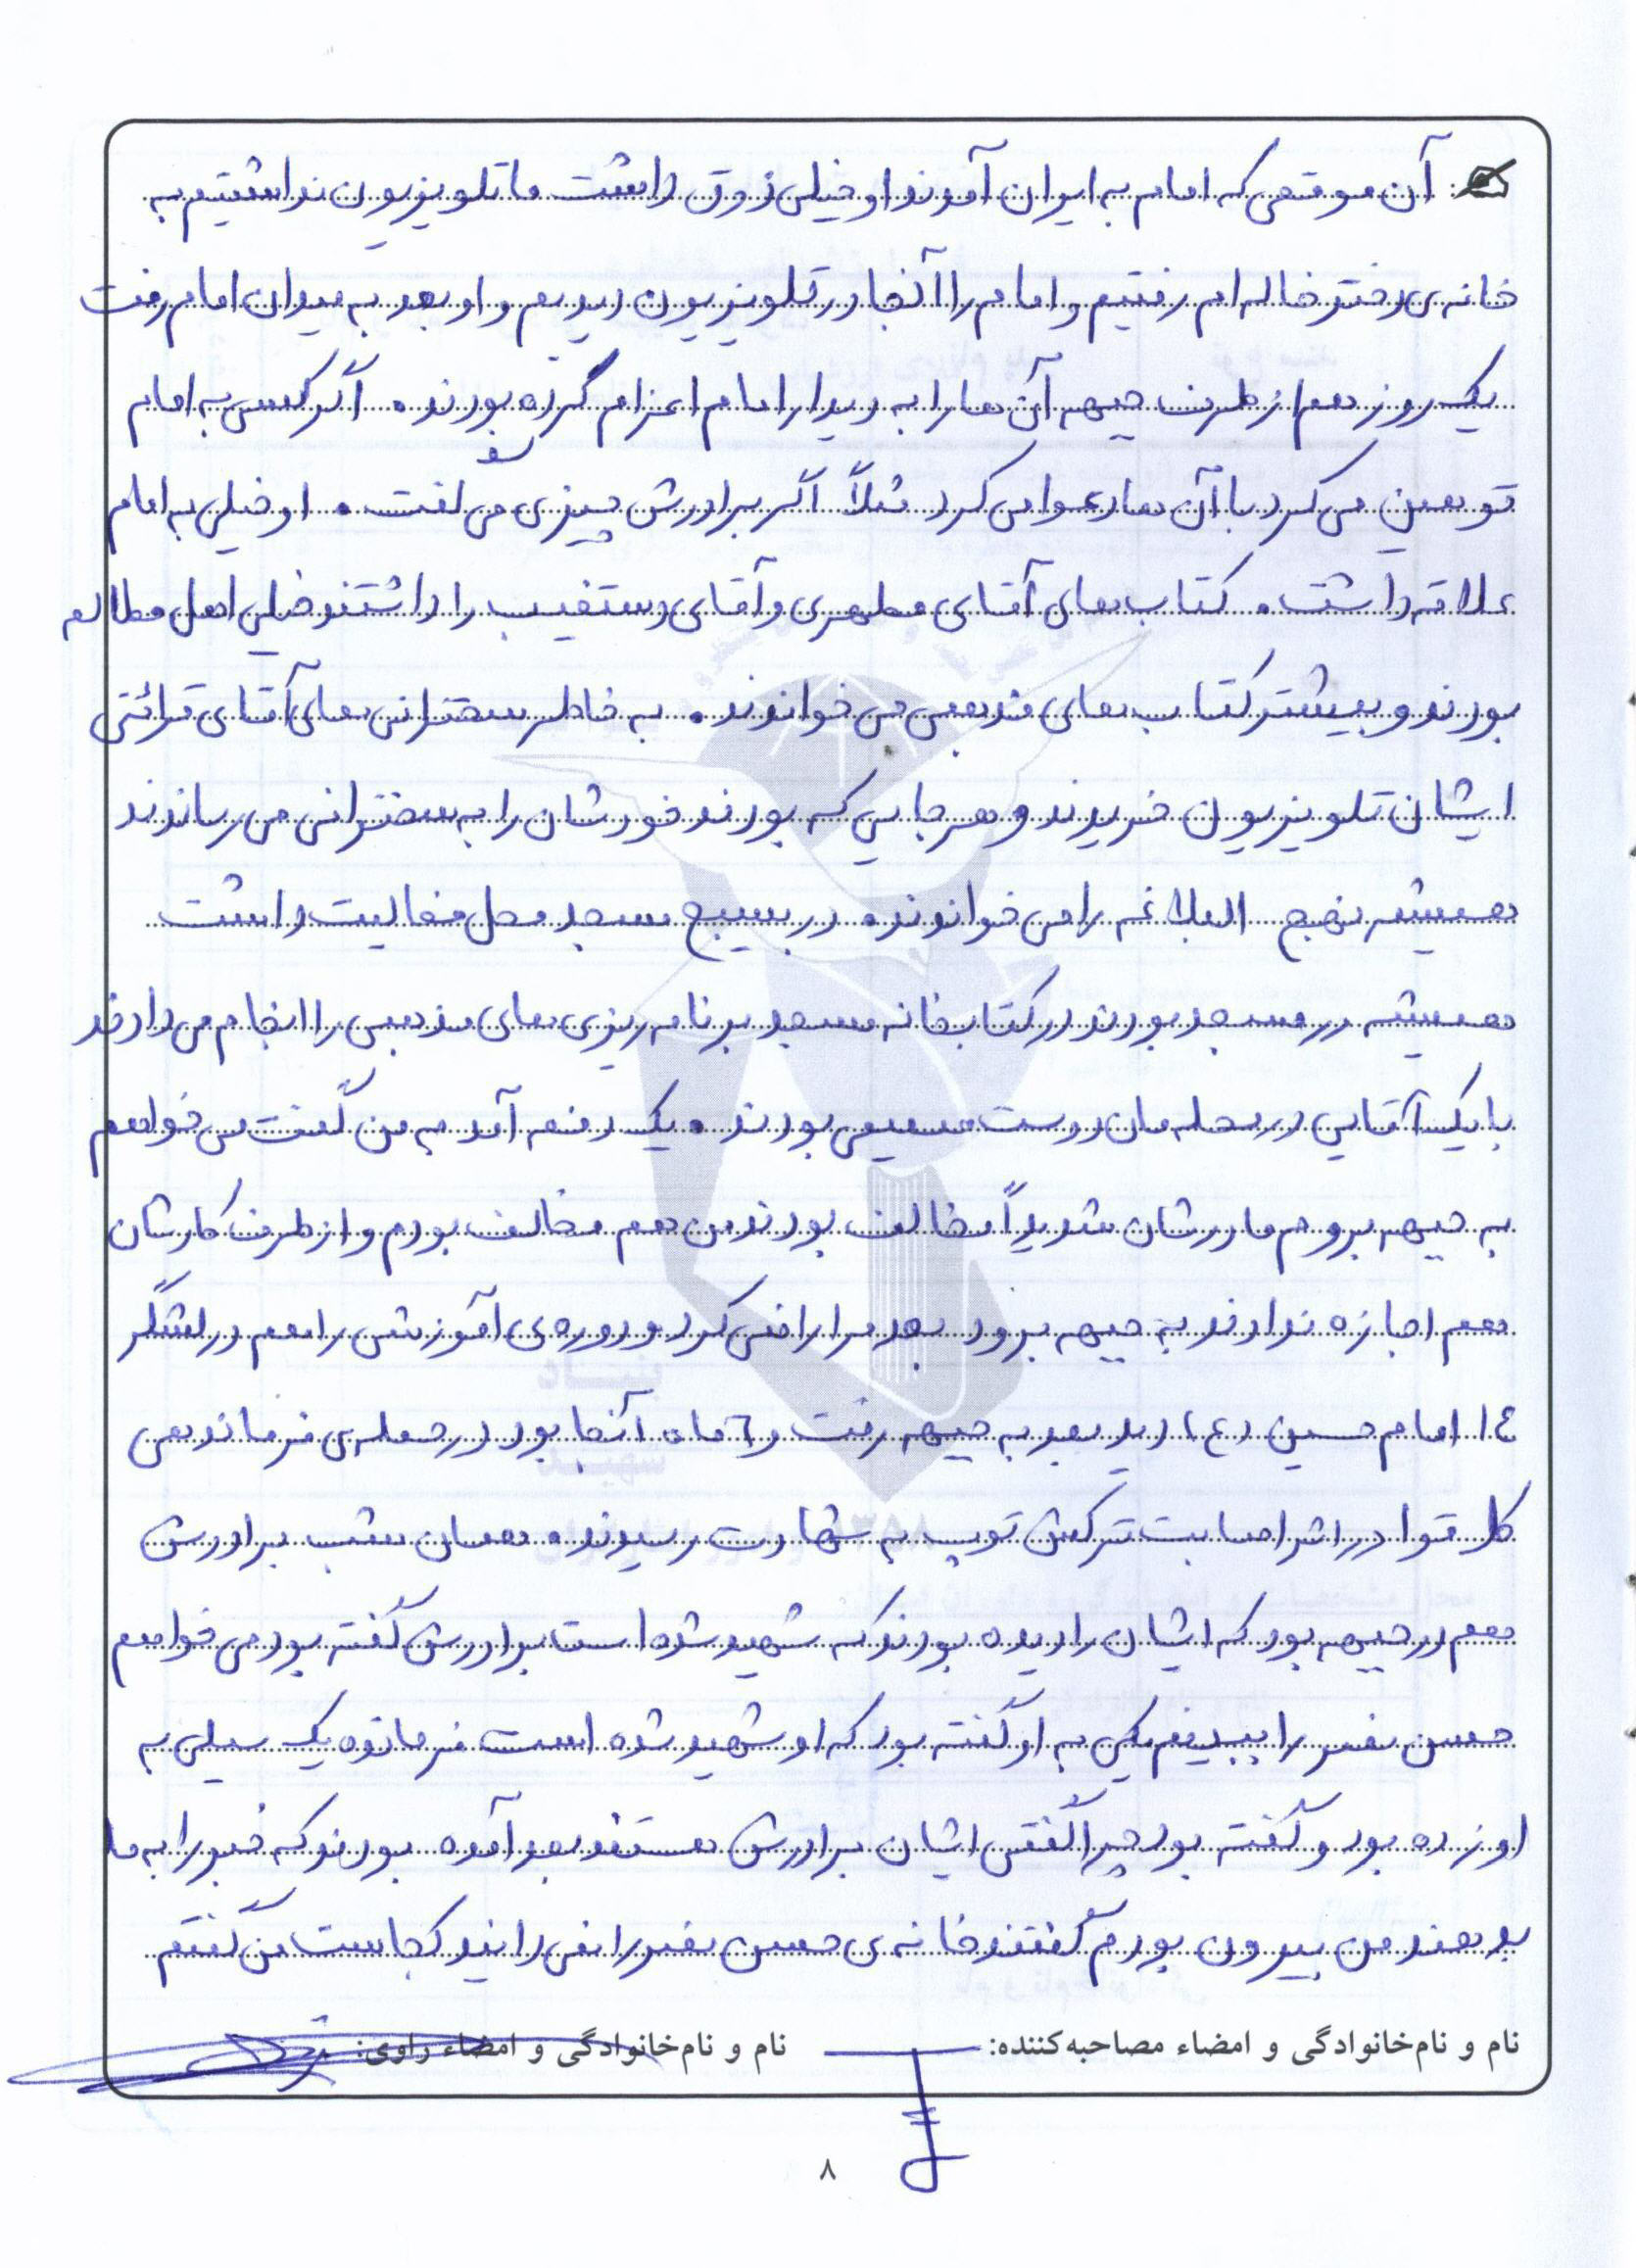 آن موقعی که امام به ایران آمدند او خیلی ذوق داشت ما تلویزیون نداشتیم به
خانه ی دختر خاله ام رفتیم و امام را آنجا در تلویزیون دیدیم و او بعد به میدان امام رفت
یک روز هم از طرف جبهه آن ها را به دیدار امام اعزام کرده بودند. اگر کسی به امام
توهین می کرد با آن ها دعوا می کرد مثلاً اگر برادرش چیزی می گفت. او خیلی به امام
علاقه داشت. کتاب های آقای مطهری و آقای دستغیب را داشتند خیلی اهل مطالعه
بودند و بیشتر کتاب های مذهبی می خواندند. به خاطر سخنرانی های آقای قرائتی
ایشان تلویزیون خریدند و هر جایی که بودند خودشان را به سخنرانی می رساندند
همیشه نهج البلاغه را می خواندند. در بسیج مسجد محل فعالیت داشت
همیشه در مسجد بودند در کتابخانه مسجد برنامه ریزی های مذهبی را انجام می دادند
با یک آقایی در محله مان دوست صمیمی بودند. یک دفعه آمد به من گفت می خواهم
به جبهه بروم مادرشان شدیداً مخالف بودند من هم مخالف بودم و از طرف کارشان
هم اجازه ندادند به جبهه برود بعد مرا راضی کرد و دوره ی آموزشی را هم در لشگر
۱٤ امام حسین (ع) دید بعد به جبهه رفت و ٦ ماه آنجا بود در حمله ی فرماندهی
کل قوا در اثر اصابت ترکش توپ به شهادت رسیدند. همان شب برادرش
هم در جبهه بود که ایشان را دیده بودند که شهید شده است برادرش گفته بود می خواهم
حسن نفر را ببینم یکی به او گفته بود که او شهید شده است فرمانده یک سیلی به
او زده بود و گفته بود چرا گفتی ایشان برادرش هستند بعد آمده بودند که خبر را به ما
بدهند من بیرون بودم گفتند خانه ی حسن نفر را نمی دانید کجاست من گفتم
نام و نام خانوادگی و امضاء مصاحبه کننده: نام و نام خانوادگی و امضاء راوی:
۸